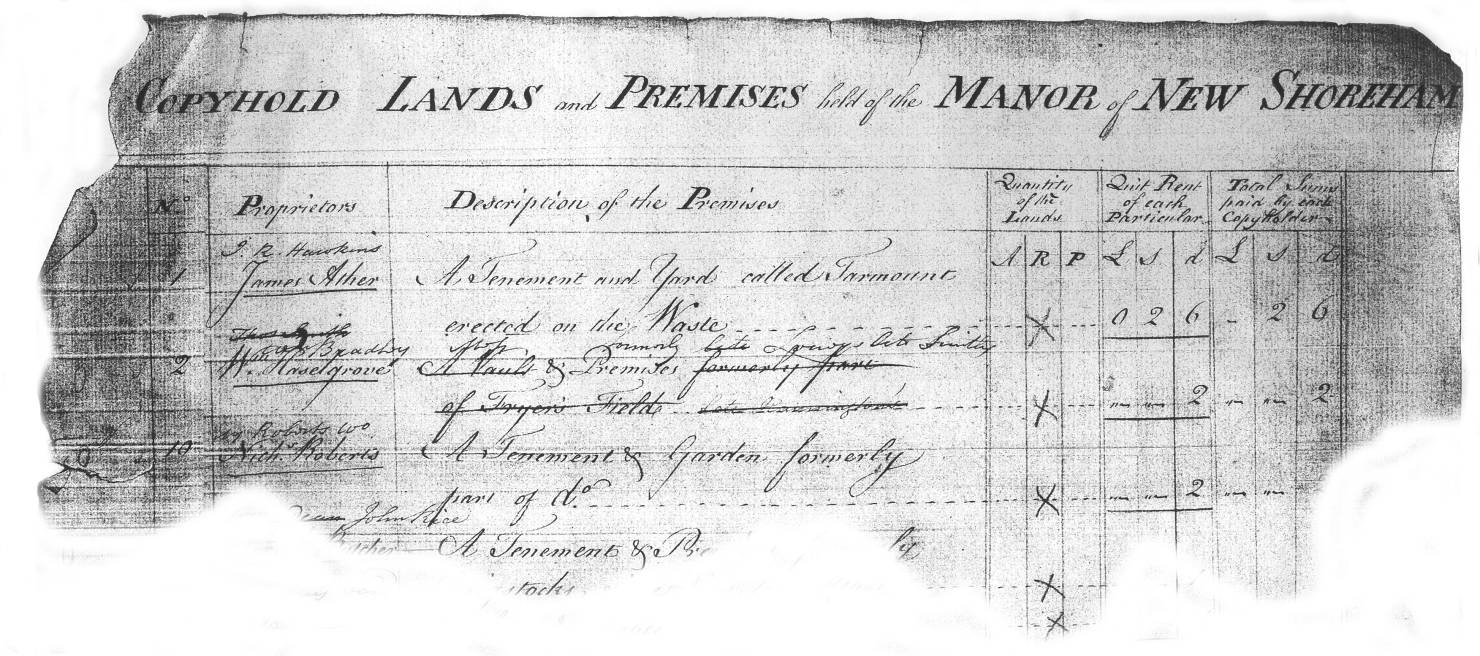 COPYHOLD LANDS and PREMISES held of the MANOR of NEW SHOREHAM
No. Proprietors Description of the Premises Quantity of the Lands Quit Rent of each Particular Total Sums paid by each Copyholder
A R P £ s d £ s d
J. R. Hawkins
1 James Asher A Tenement and Yard called Tarmount
erected on the Waste X 0 2 6 - 2 6
Bradley late late
2 W. Haselgrove A Vault & Premises formerly part
of Fryer's Field late X " " 2 " " 2
Roberts
10 Nichs Roberts A Tenement & Garden formerly
part of do. X " " 2 " "
John Rice
A Tenement &
stocks X
X